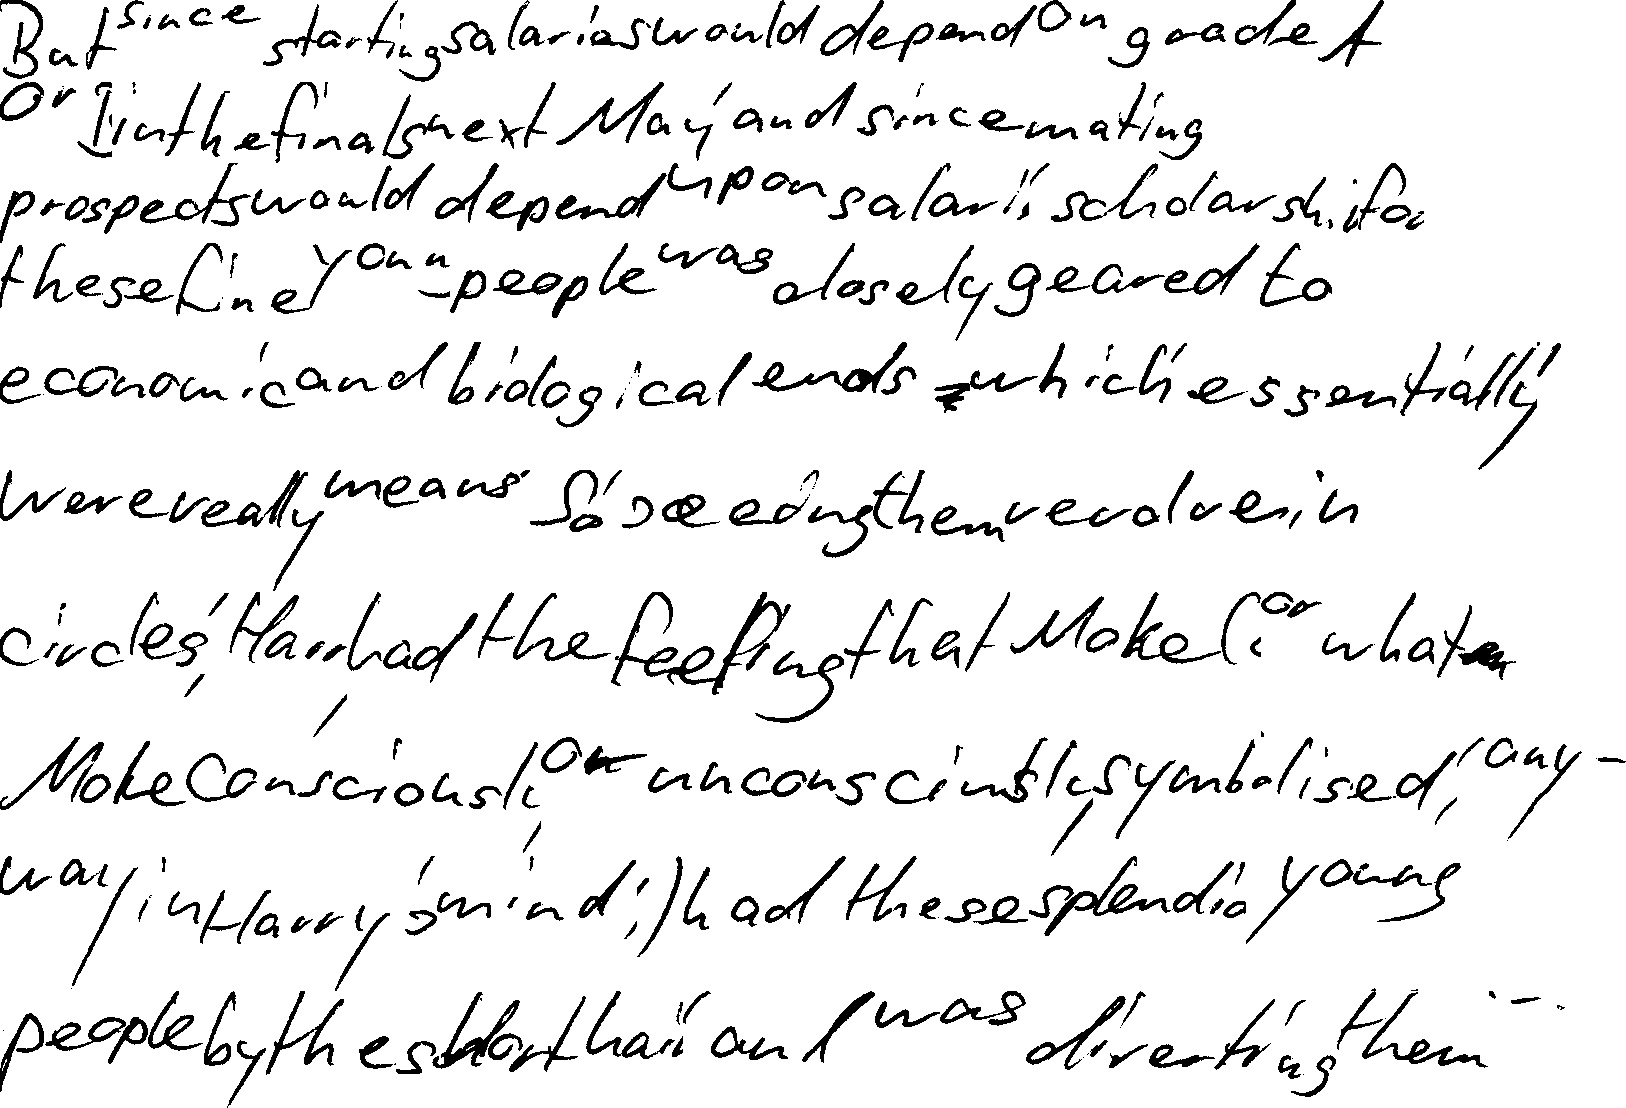 But since starting salaries would depend on grade A
or I in the finals next May and since mating
prospects would depend upon salari, scholarshi for
these fine young people was closely geared to
economic and biological ends which essentially
were really means. So seeing them revolve in
circles, Harry had the feeling that Moke (or what
Moke consciously or unconsciously symbolised, any-
way in Harry's mind,) had these splendid young
people by the short hair and was directing them